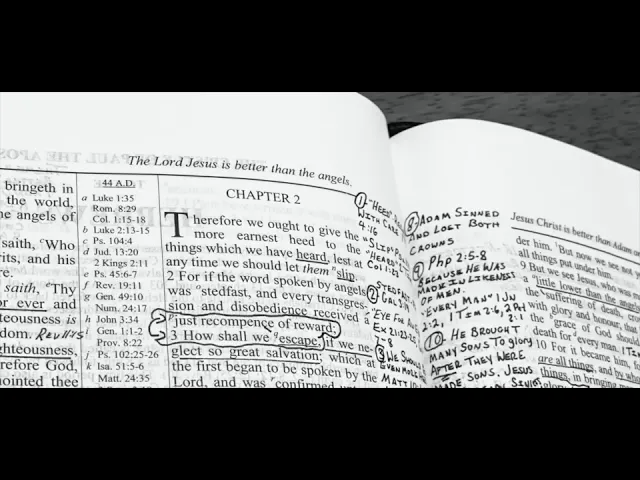 PAUL THE APOS
The Lord Jesus is better than the angels.
bringeth in
the world,
he angels of
saith, Who
rits, and his
re.
saith, Thy
or ever and
hteousness is
dom. Rev 19:15
ghteousness,
erefore God,
nointed thee
44 A.D.
a Luke 1:35
Rom. 8:29
Col. 1:15-18
b Luke 2:13-15
c Ps. 104:4
d Jud. 13:20
2 Kings 2:11
e Ps. 45:6-7
f Rev. 19:11
g Gen. 49:10
Num. 24:17
i Gen. 1:1-2
h John 3:34
Prov. 8:22
j Ps. 102:25-26
k Isa. 51:5-6
l Matt. 24:35
CHAPTER 2
Therefore we ought to give the
more earnest heed to the
things which we have heard, lest at
any time we should let them slip.
2 For if the word spoken by angels
was stedfast, and every transgres-
sion and disobedience received a
just recompence of reward;
3 How shall we escape, if we ne-
glect so great salvation; which at
the first began to be spoken by the
Lord, and was confirmed
1 "HEED"
WITH CARE
4:16
"SLIP"
"HEARD"
COL 1:23
2 STEDFAST
GAL 3:19
"EYE FOR AN
EX 21:23-25
3 WE SHOULD
EVEN MORE
MATT
8 ADAM SINNED
AND LOST BOTH
CROWNS
9 Php 2:5-8
BECAUSE HE WAS
MADE IN LIKENESS
OF MEN.
"EVERY MAN" 1 JN
2:2, 1 TIM 2:6, 2 Pet
2:1
10 HE BROUGHT
MANY SONS TO glory
AFTER THEY WERE
MADE SONS. JESUS
Jesus Christ is better than Adam
der him. But now we see not
all things put under him.
9 But we see Jesus, who was
a little lower than the angels
the suffering of death,
with glory and honour, that
the grace of God should
death for every man.
10 For it became him, for
are all things, and by whom
things, in bringing